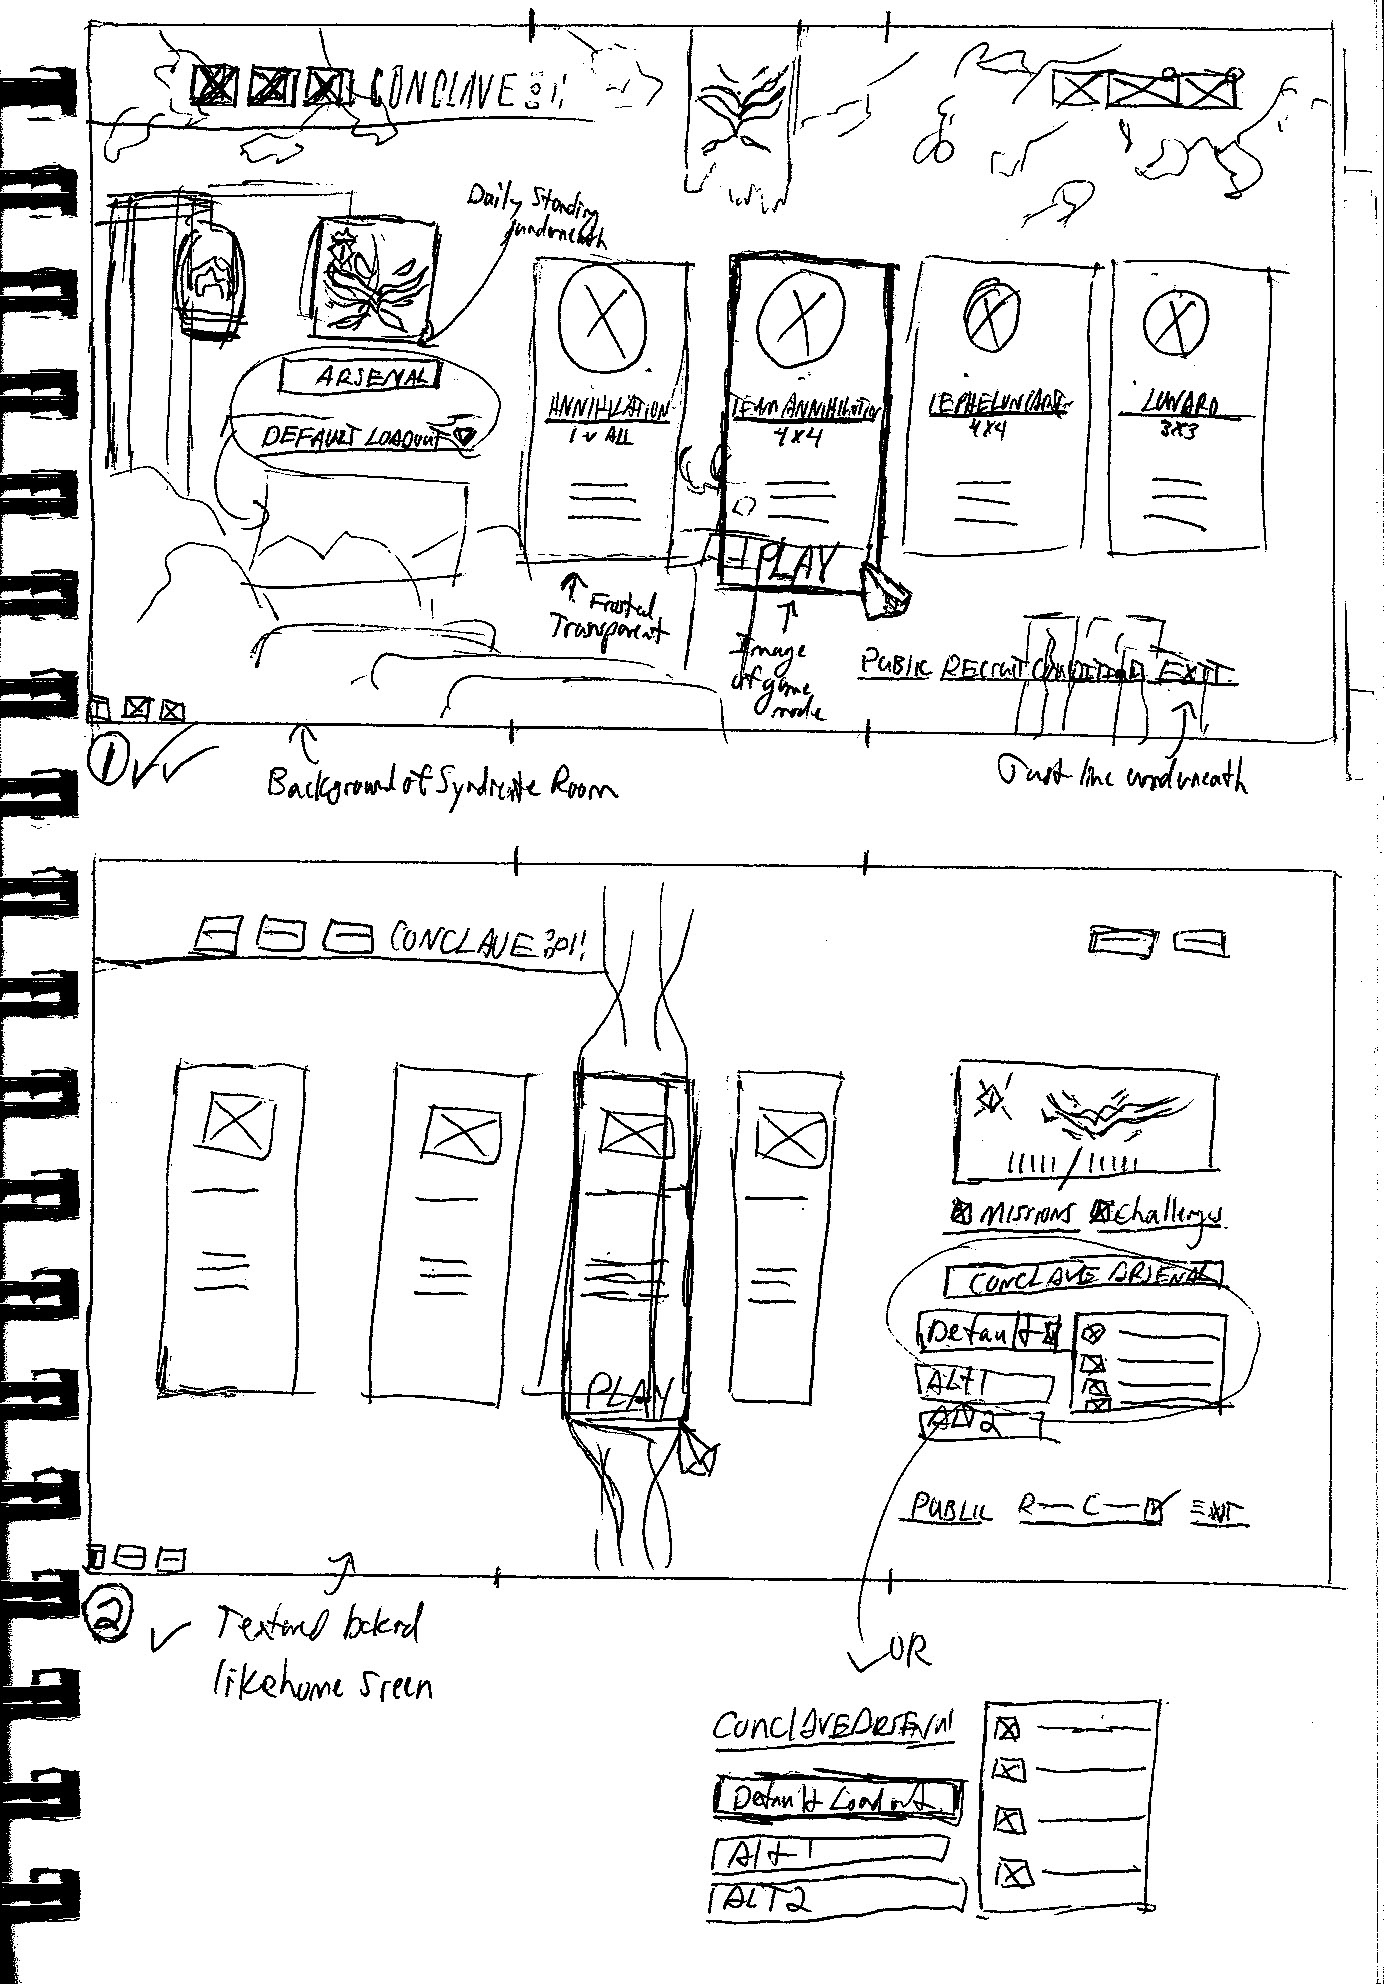 CONCLAVE
Daily Standing
underneath
ARSENAL
DEFAULT LOADOUT
ANNIHILATION
1 v ALL
TEAM ANNIHILATION
4x4
4x4
LUNARO
3x3
PLAY
Frosted
Transparent
Image
of game
mode
PUBLIC RECRUIT CONDITION EXIT
1
Background of Syndicate Room
Just line underneath
CONCLAVE
MISSIONS Challenges
CONCLAVE ARSENAL
Default
ALT 1
ALT 2
PLAY
PUBLIC R C EXIT
2
Textured
like home sreen
OR
CONCLAVE ARSENAL
Default Loadout
Alt 1
ALT 2